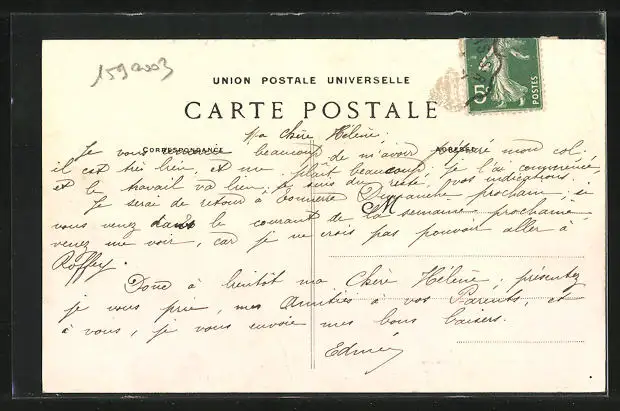 1592003
UNION POSTALE UNIVERSELLE
CARTE POSTALE
5c
POSTES
CORRESPONDANCE
ADRESSE
M
Ma Chère Hélène.
Je vous beaucoup de m'avoir mon col.
il est très bien, et me plaît beaucoup, je l'ai commencé
et le travail va bien, je suis du reste, vos indications.
Je serai de retour à Tonnerre Dimanche prochain. si
vous venez dans le courant de la semaine prochaine
venez me voir, car je ne crois pas pouvoir aller à
Roffey.
Donc à bientôt ma Chère Hélène, présentez
je vous prie, mes Amitiés à vos Parents, et
à vous, je vous envoie mes bons baisers.
Edmée